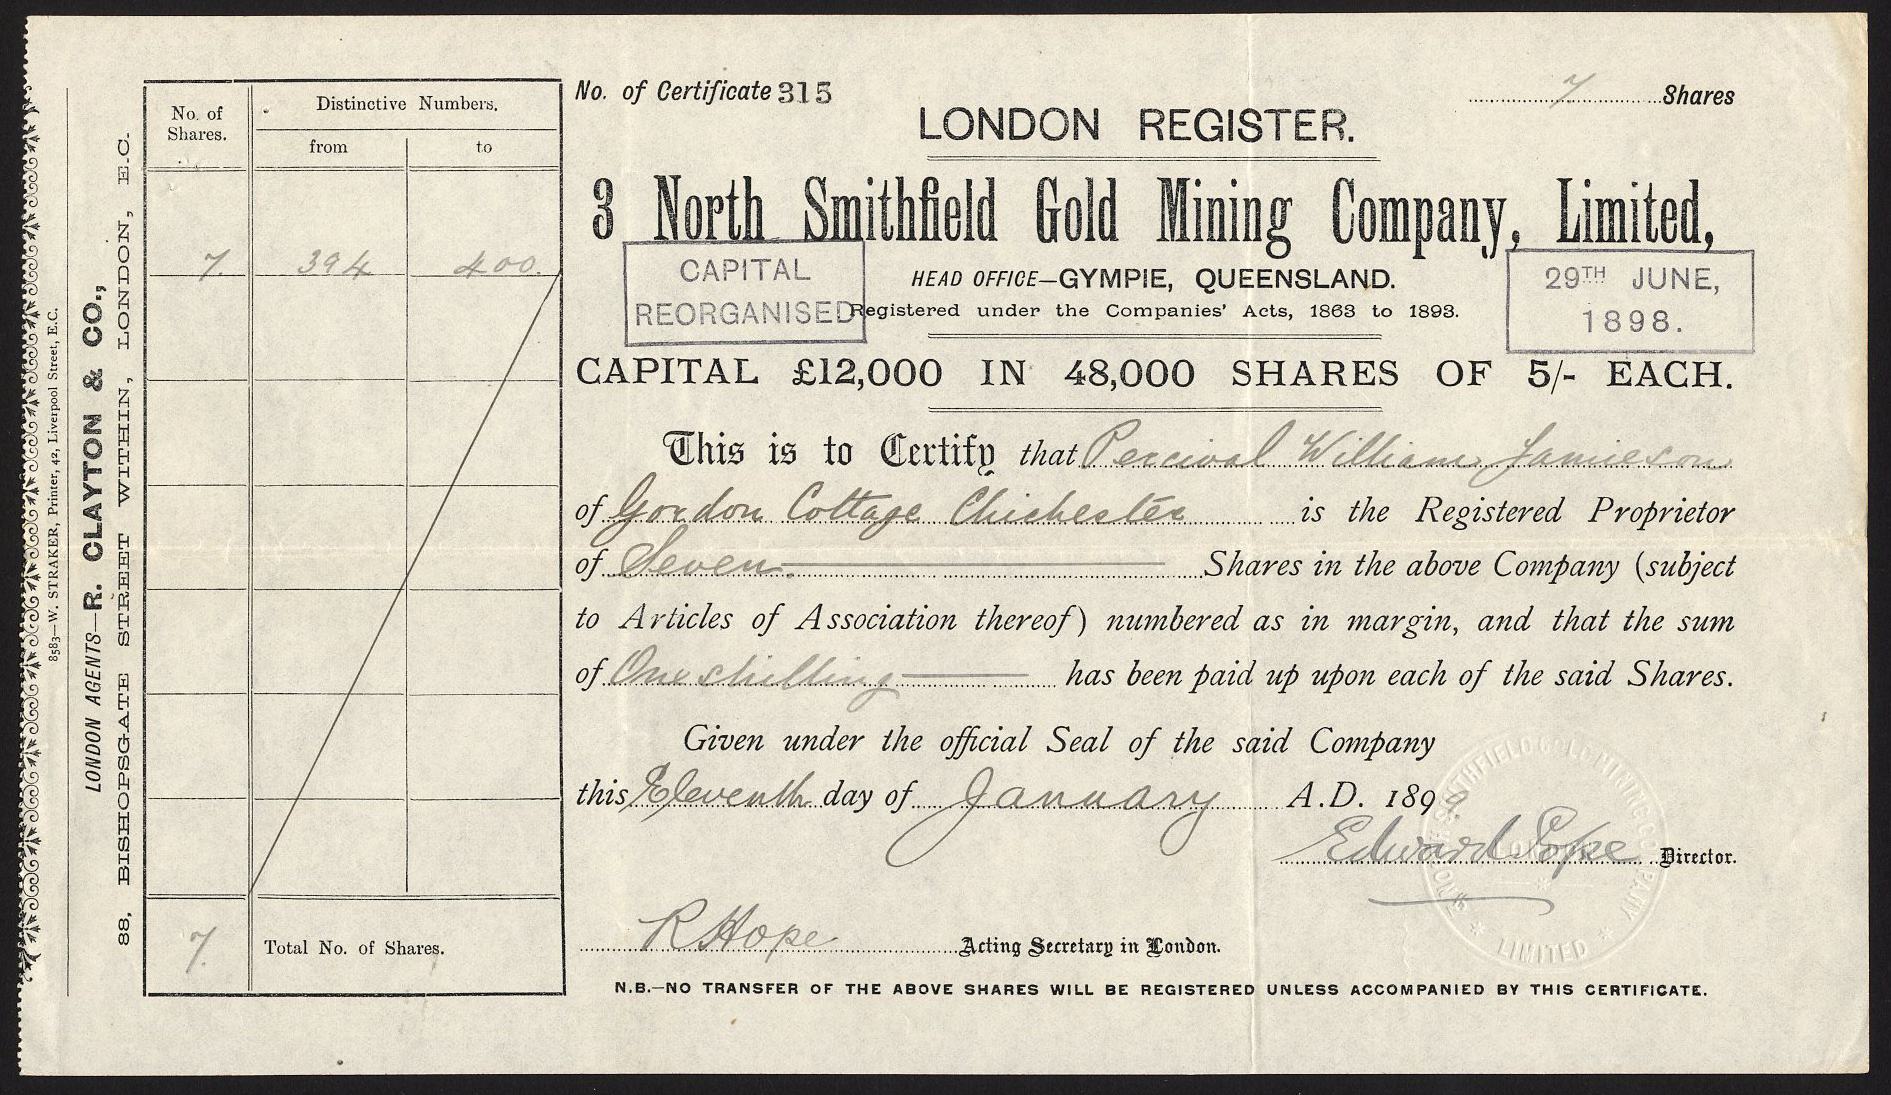 8583—W. STRAKER, Printer, 42, Liverpool Street, E.C.
LONDON AGENTS—R. CLAYTON & CO.,
88, BISHOPSGATE STREET WITHIN, LONDON, E.C.
No. of Shares.
Distinctive Numbers.
from to
7. 394 400.
7. Total No. of Shares.
No. of Certificate 315
7 Shares
LONDON REGISTER.
3 North Smithfield Gold Mining Company, Limited,
CAPITAL
REORGANISED
HEAD OFFICE—GYMPIE, QUEENSLAND.
Registered under the Companies' Acts, 1863 to 1893.
29TH JUNE,
1898.
CAPITAL £12,000 IN 48,000 SHARES OF 5/- EACH.
This is to Certify that Percival William Jamieson
of Gordon Cottage Chichester is the Registered Proprietor
of Seven. Shares in the above Company (subject
to Articles of Association thereof) numbered as in margin, and that the sum
of One shilling has been paid up upon each of the said Shares.
Given under the official Seal of the said Company
this Eleventh day of January A.D. 1899.
Edward Pope Director.
R Hope Acting Secretary in London.
N.B.—NO TRANSFER OF THE ABOVE SHARES WILL BE REGISTERED UNLESS ACCOMPANIED BY THIS CERTIFICATE.
NORTH SMITHFIELD GOLD MINING COMPANY
LONDON
LIMITED